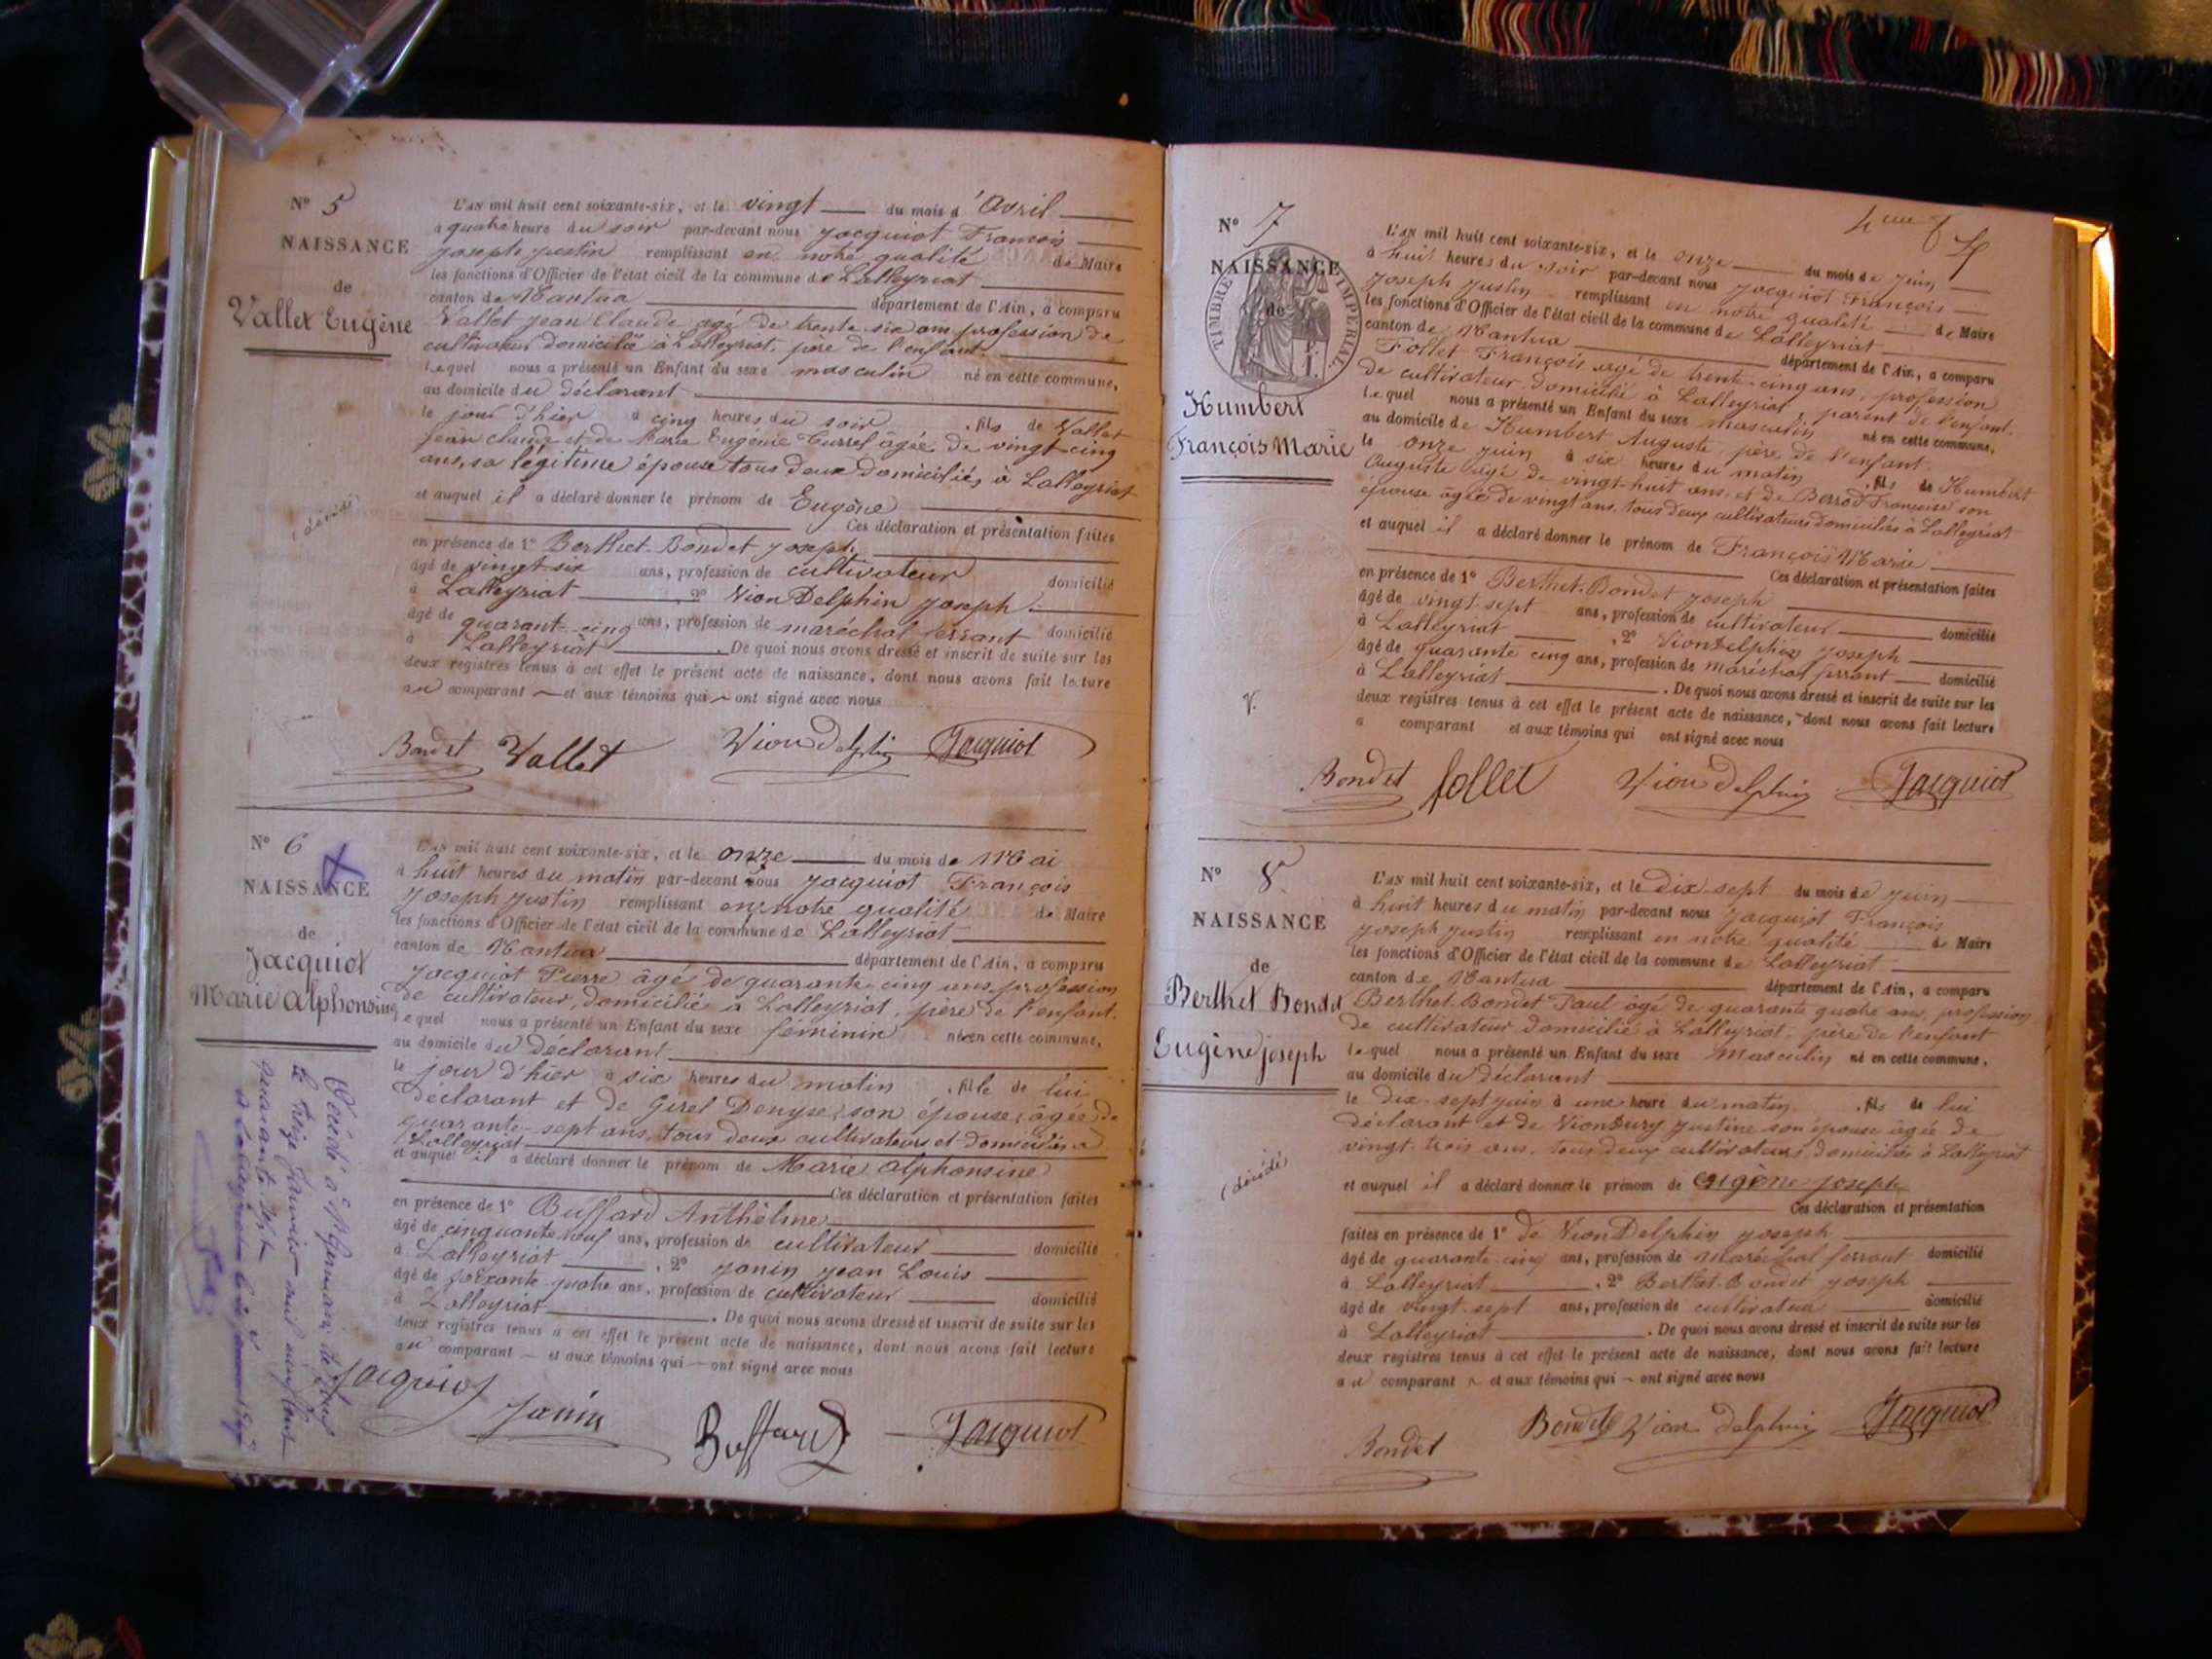 N° 5
NAISSANCE
de
Vallet Eugène
décédé
L'AN mil huit cent soixante-six, et le vingt du mois d'Avril
à quatre heure du soir par-devant nous Jacquiot François
Joseph Justin remplissant en notre qualité de Maire
les fonctions d'Officier de l'état civil de la commune de Lalleyriat
canton de Nantua département de l'Ain, a comparu
Vallet Jean Claude agé de trente six ans profession de
cultivateur domicilié à Lalleyriat, père de l'enfant.
Lequel nous a présenté un Enfant du sexe masculin né en cette commune,
au domicile du déclarant
le jour d'hier à cinq heures du soir, fils de Vallet
Jean Claude et de Marie Eugénie Turrel âgée de vingt-cinq
ans, sa légitime épouse tous deux domiciliés à Lalleyriat
et auquel il a déclaré donner le prénom de Eugène
Ces déclaration et présentation faites
en présence de 1° Berthet-Bondet Joseph
âgé de vingt six ans, profession de cultivateur domicilié
à Lalleyriat, 2° Vion Delphin Joseph
âgé de quarant-cinq ans, profession de maréchal ferrant domicilié
à Lalleyriat. De quoi nous avons dressé et inscrit de suite sur les
deux registres tenus à cet effet le présent acte de naissance, dont nous avons fait lecture
au comparant et aux témoins qui ont signé avec nous
Bondet Vallet Vion Delphin Jacquiot
N° 6
NAISSANCE
de
Jacquiot
Marie Alphonsine
Décédé à St Germain de Joux
le treize Janvier mil neuf cent
quarante sept
L'AN mil huit cent soixante-six, et le onze du mois de Mai
à huit heures du matin par-devant nous Jacquiot François
Joseph Justin remplissant en notre qualité de Maire
les fonctions d'Officier de l'état civil de la commune de Lalleyriat
canton de Nantua département de l'Ain, a comparu
Jacquiot Pierre âgé de quarante cinq ans, profession
de cultivateur, domicilié à Lalleyriat, père de l'enfant.
Lequel nous a présenté un Enfant du sexe féminin née en cette commune,
au domicile du déclarant
le jour d'hier à six heures du matin, fille de lui
déclarant et de Girel Denyse, son épouse, âgée de
quarante-sept ans, tous deux cultivateurs et domiciliés à
Lalleyriat
et auquel il a déclaré donner le prénom de Marie Alphonsine
Ces déclaration et présentation faites
en présence de 1° Buffard Anthelme
âgé de cinquante neuf ans, profession de cultivateur domicilié
à Lalleyriat, 2° Janin Jean Louis
âgé de soixante-quatre ans, profession de cultivateur domicilié
à Lalleyriat. De quoi nous avons dressé et inscrit de suite sur les
deux registres tenus à cet effet le présent acte de naissance, dont nous avons fait lecture
au comparant et aux témoins qui ont signé avec nous
Jacquiot Janin Buffard Jacquiot
4
N° 7
NAISSANCE
de
TIMBRE IMPERIAL
Humbert
François Marie
L'AN mil huit cent soixante-six, et le onze du mois de Juin
à huit heures du soir par-devant nous Jacquiot François
Joseph Justin remplissant en notre qualité de Maire
les fonctions d'Officier de l'état civil de la commune de Lalleyriat
canton de Nantua département de l'Ain, a comparu
Follet François agé de trente-cinq ans, profession
de cultivateur domicilié à Lalleyriat, parent de l'enfant.
Lequel nous a présenté un Enfant du sexe masculin né en cette commune,
au domicile de Humbert Auguste père de l'enfant
le onze juin à six heures du matin, fils de Humbert
Auguste âgé de vingt-huit ans, et de Berrod Françoise son
épouse âgée de vingt ans, tous deux cultivateurs domiciliés à Lalleyriat
et auquel il a déclaré donner le prénom de François Marie
Ces déclaration et présentation faites
en présence de 1° Berthet-Bondet Joseph
âgé de vingt-sept ans, profession de cultivateur domicilié
à Lalleyriat, 2° Vion Delphin Joseph
âgé de quarante cinq ans, profession de maréchal ferrant domicilié
à Lalleyriat. De quoi nous avons dressé et inscrit de suite sur les
deux registres tenus à cet effet le présent acte de naissance, dont nous avons fait lecture
a comparant et aux témoins qui ont signé avec nous
Bondet Follet Vion Delphin Jacquiot
N° 8
NAISSANCE
de
Berthet Bondet
Eugène Joseph
(décédé)
L'AN mil huit cent soixante-six, et le Dix-sept du mois de Juin
à huit heures du matin par-devant nous Jacquiot François
Joseph Justin remplissant en notre qualité de Maire
les fonctions d'Officier de l'état civil de la commune de Lalleyriat
canton de Nantua département de l'Ain, a comparu
Berthet-Bondet Paul âgé de quarante quatre ans, profession
de cultivateur domicilié à Lalleyriat, père de l'enfant
lequel nous a présenté un Enfant du sexe masculin né en cette commune,
au domicile du déclarant
le dix-sept juin à une heure du matin, fils de lui
déclarant et de Vion Dury Justine son épouse âgée de
vingt-trois ans, tous deux cultivateurs, domiciliés à Lalleyriat
et auquel il a déclaré donner le prénom de Eugène Joseph
Ces déclaration et présentation
faites en présence de 1° de Vion Delphin Joseph
âgé de quarante cinq ans, profession de maréchal ferrant domicilié
à Lalleyriat, 2° Berthet-Bondet Joseph
âgé de vingt-sept ans, profession de cultivateur domicilié
à Lalleyriat. De quoi nous avons dressé et inscrit de suite sur les
deux registres tenus à cet effet le présent acte de naissance, dont nous avons fait lecture
au comparant et aux témoins qui ont signé avec nous
Bondet Bondet Vion Delphin Jacquiot